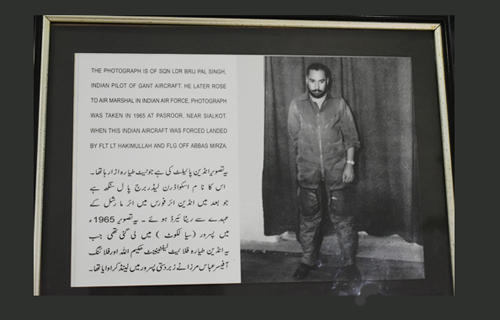 THE PHOTOGRAPH IS OF SQN LDR BRIJ PAL SINGH,
INDIAN PILOT OF GANT AIRCRAFT. HE LATER ROSE
TO AIR MARSHAL IN INDIAN AIR FORCE. PHOTOGRAPH
WAS TAKEN IN 1965 AT PASROOR, NEAR SIALKOT,
WHEN THIS INDIAN AIRCRAFT WAS FORCED LANDED
BY FLT LT HAKIMULLAH AND FLG OFF ABBAS MIRZA.
یہ تصویر انڈین پائیلٹ کی ہے جو نیٹ طیارہ اڑا رہا تھا۔
اس کا نام اسکواڈرن لیڈر برج پال سنگھ ہے
جو بعد میں انڈین ائر فورس میں ائر مارشل کے
عہدے سے ریٹائیرڈ ہوئے ۔ یہ تصویر 1965ء
میں پسرور (سیالکوٹ) میں لی گئی تھی جب
یہ انڈین طیارہ فلائیٹ لیفٹیننٹ حکیم اللہ اور فلائنگ
آفیسر عباس مرزا نے زبردستی پسرور میں لینڈ کروایا تھا۔